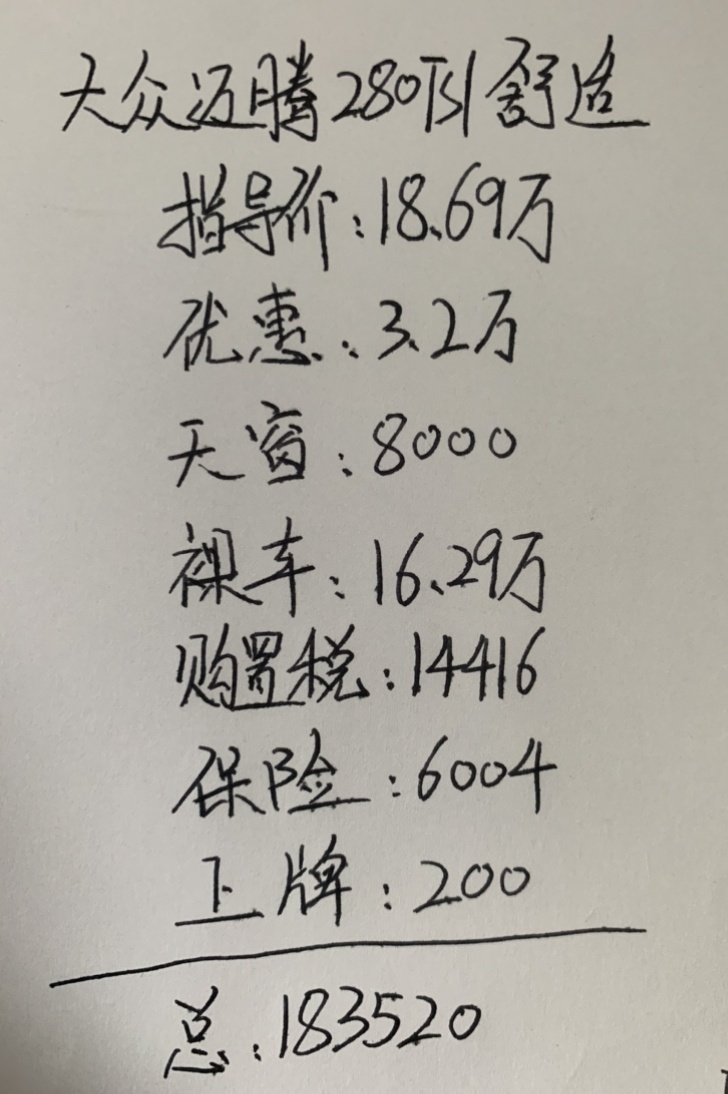 大众迈腾280TSI舒适
指导价:18.69万
优惠:3.2万
天窗:8000
裸车:16.29万
购置税:14416
保险:6004
上牌:200
总:183520